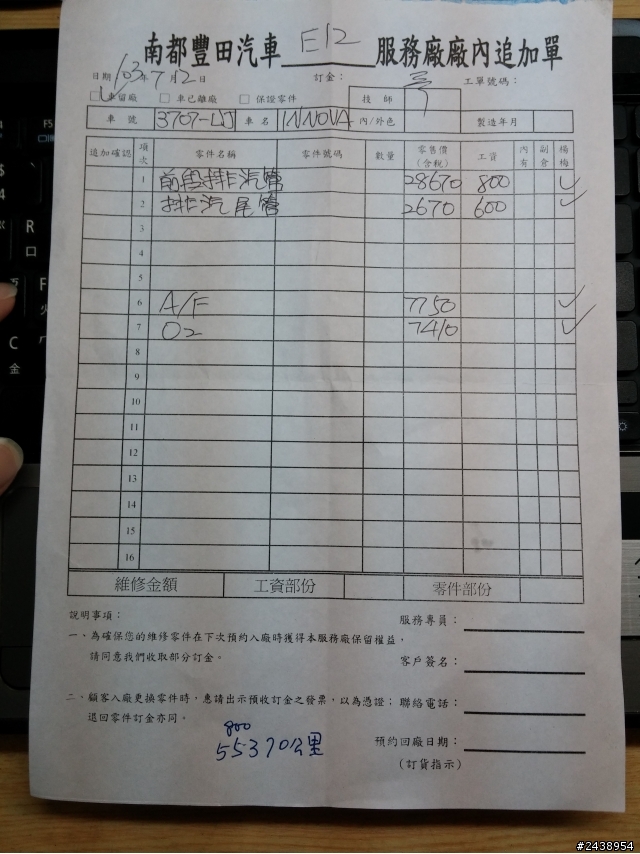 南都豐田汽車 E12 服務廠廠內追加單
日期 103年7月12日 訂金： 工單號碼：
□車留廠 □車已離廠 □保證零件 技師
車號 3707-LJ 車名 INNOVA 內/外色 製造年月
追加確認 項次 零件名稱 零件號碼 數量 零售價(含稅) 工資 內有 副倉 楊梅
1 前段排汽管 28670 800
2 排汽尾管 2670 600
3
4
5
6 A/F 7750
7 O2 7410
8
9
10
11
12
13
14
15
16
維修金額 工資部份 零件部份
說明事項：
服務專員：
一、為確保您的維修零件在下次預約入廠時獲得本服務廠保留權益，
請同意我們收取部分訂金。
客戶簽名：
二、顧客入廠更換零件時，惠請出示預收訂金之發票，以為憑證；
退回零件訂金亦同。
聯絡電話：
預約回廠日期：
(訂貨指示)
800
55370公里
#2438954